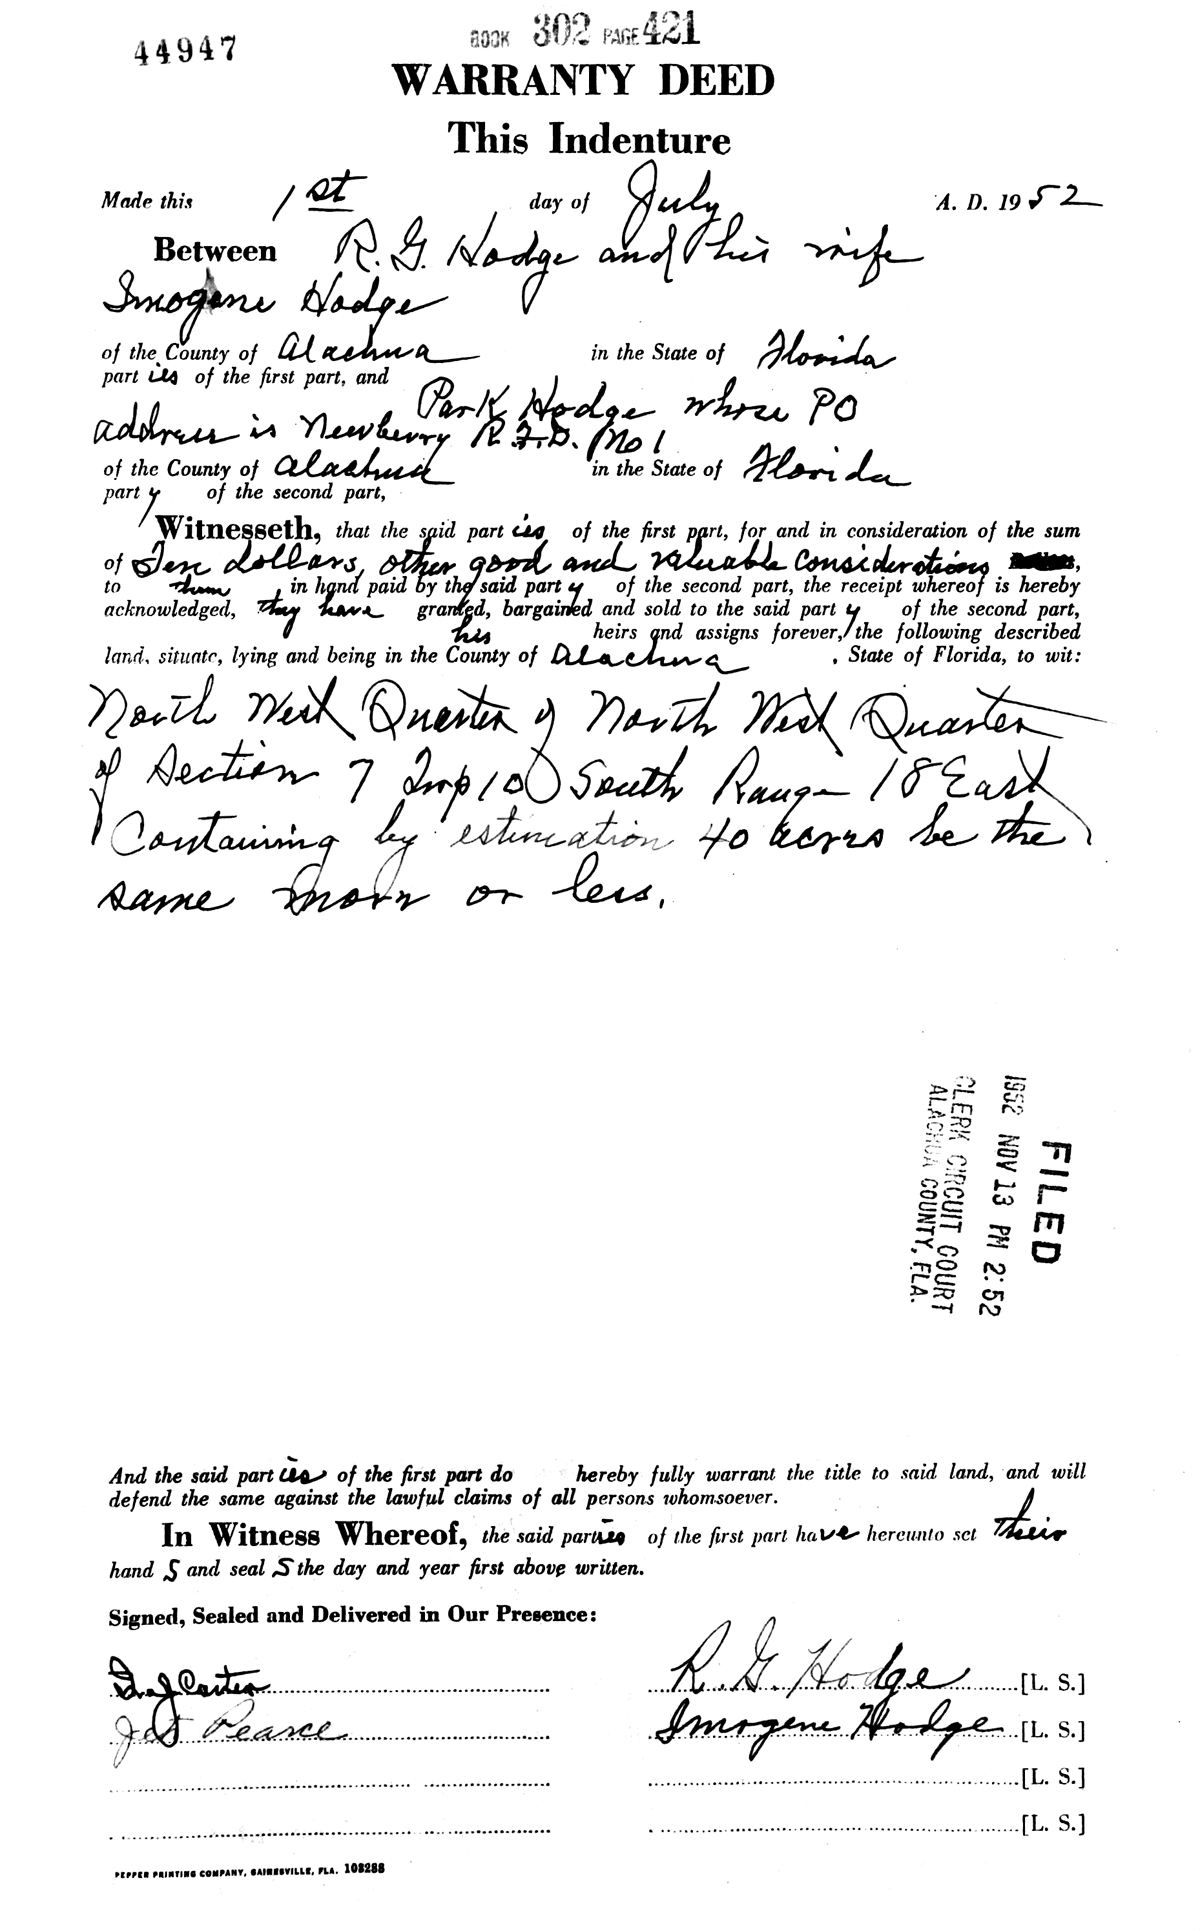 44947
BOOK 302 PAGE 421
WARRANTY DEED
This Indenture
Made this 1st day of July A. D. 1952
Between R. G. Hodge and his wife
Imogene Hodge
of the County of Alachua in the State of Florida
parties of the first part, and
Park Hodge whose PO
address is Newberry R.F.D. No 1
of the County of Alachua in the State of Florida
party of the second part,
Witnesseth, that the said parties of the first part, for and in consideration of the sum
of Ten dollars, other good and valuable considerations,
to them, in hand paid by the said party of the second part, the receipt whereof is hereby
acknowledged, they have granted, bargained and sold to the said party of the second part,
his heirs and assigns forever, the following described
land, situate, lying and being in the County of Alachua, State of Florida, to wit:
North West Quarter of North West Quarter
of Section 7 Twp 10 South Range 18 East
Containing by estimation 40 acres be the
same more or less.
FILED
1952 NOV 13 PM 2:52
CLERK CIRCUIT COURT
ALACHUA COUNTY, FLA.
And the said parties of the first part do hereby fully warrant the title to said land, and will
defend the same against the lawful claims of all persons whomsoever.
In Witness Whereof, the said parties of the first part have hereunto set their
hand S and seal S the day and year first above written.
Signed, Sealed and Delivered in Our Presence:
Carter R. G. Hodge [L. S.]
Pearce Imogene Hodge [L. S.]
[L. S.]
[L. S.]
PEPPER PRINTING COMPANY, GAINESVILLE, FLA. 103288